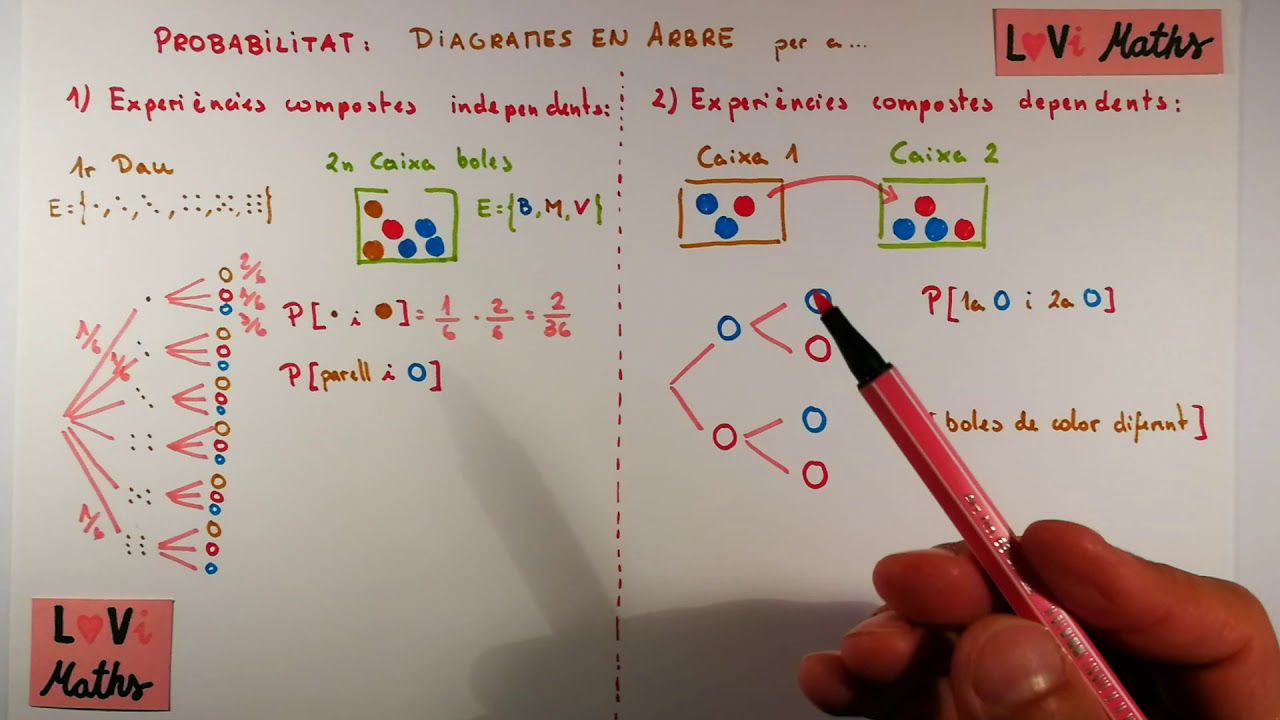 PROBABILITAT: DIAGRAMES EN ARBRE per a...
LoVi Maths
1) Experiències compostes independents:
1r Dau
E={ }
2n Caixa boles
E={B, M, V}
1/6
1/6
1/6
2/6
1/6
3/6
P[ i ] = 1/6 · 2/6 = 2/36
P[parell i ]
2) Experiències compostes dependents:
Caixa 1
Caixa 2
P[1a i 2a ]
[boles de color diferent]
LoVi
Maths